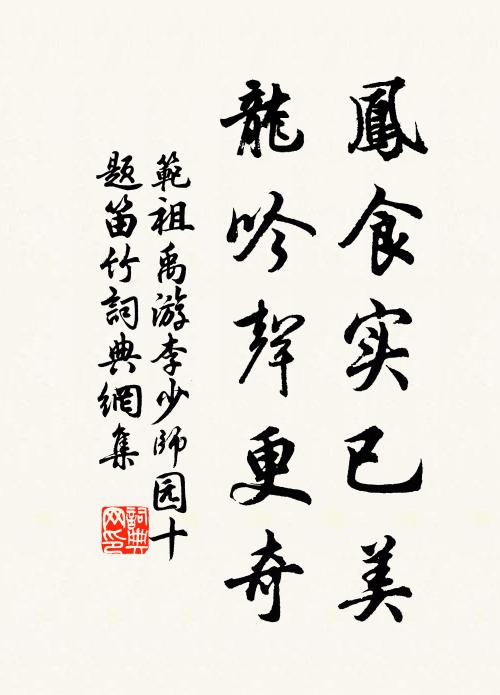 鳳食实已美
龍吟聲更奇
範祖禹游李少师园十
题笛竹詞典網集
詞典网印